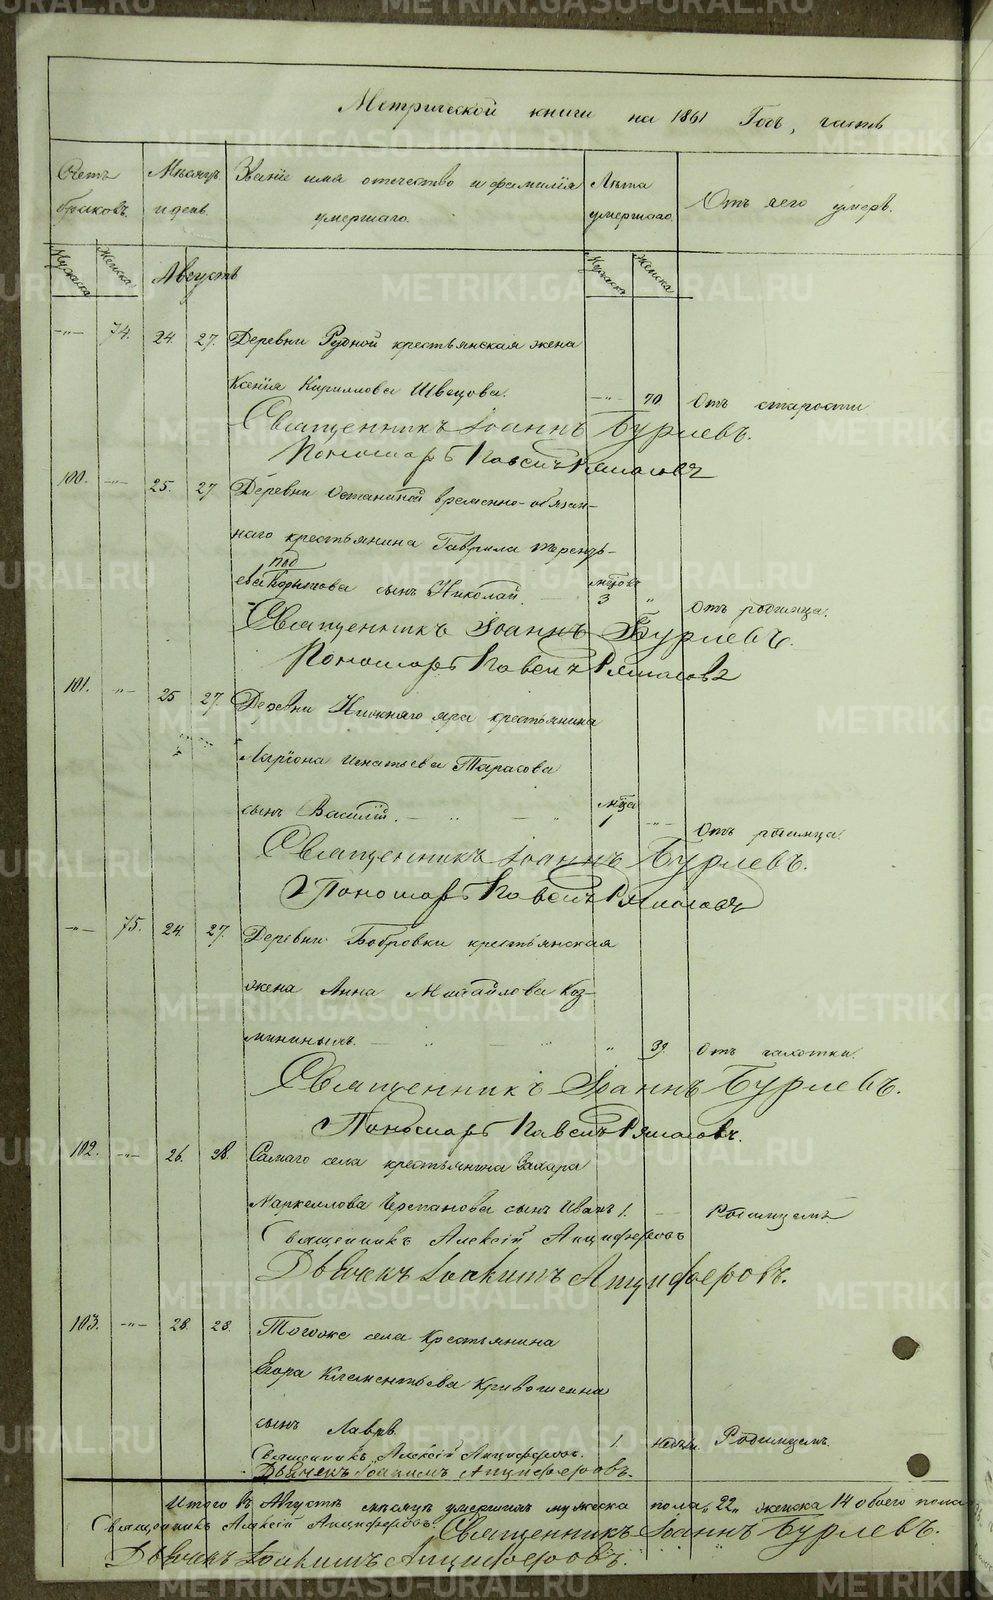 Метрической книги на 1861 Годъ, часть
Счетъ браковъ. Мѣсяцъ и день Званіе имя отчество и фамилія умершаго. Лѣта умершаго Отъ чего умеръ.
Мужеска Женска Августъ Мужеска Женска
-"- 74. 24. 27. Деревни Рудной крестьянская жена
Ксенія Кириллова Швецова. -"- 70. Отъ старости
Священникъ Іоаннъ Бурлевъ.
Пономарь Павелъ
100. -"- 25. 27 Деревни Останиной временно-обязан-
наго крестьянина Гаврила Терентье-
под
ева сынъ Николай. 3 " Отъ родимца.
Священникъ Іоаннъ Бурлевъ.
Пономарь Павелъ
101. -"- 25 27. Деревни Нижняго яра крестьянина
Ларіона Игнатьева Тарасова
сынъ Василій. мца 1 -"- Отъ родимца.
Священникъ Іоаннъ Бурлевъ.
Пономарь Павелъ
-"- 75. 24. 27. Деревни Бобровки крестьянская
жена Анна Михайлова Коз-
мининыхъ. " 39. Отъ чахотки.
Священникъ Іоаннъ Бурлевъ.
Пономарь Павелъ
102. -"- 26. 28. Самаго села крестьянина Захара
Маркеллова Черепанова сынъ Иванъ 1. Родимцемъ
Священникъ Алексій Анциферовъ
Дьячекъ Іоакимъ Анциферовъ.
103. -"- 28. 28. Тогоже села Крестьянина
Егора Климентьева Кривошеина
сынъ Лавръ. 1. недѣли. Родимцемъ.
Священникъ Алексій Анциферовъ.
Дьячекъ Іоакимъ Анциферовъ.
Итого въ Августѣ мѣсяцѣ умершихъ мужеска пола "22" женска 14 обоего пола
Священникъ Алексій Анциферовъ. Священникъ Іоаннъ Бурлевъ.
Дьячекъ Іоакимъ Анциферовъ.
METRIKI.GASO-URAL.RU